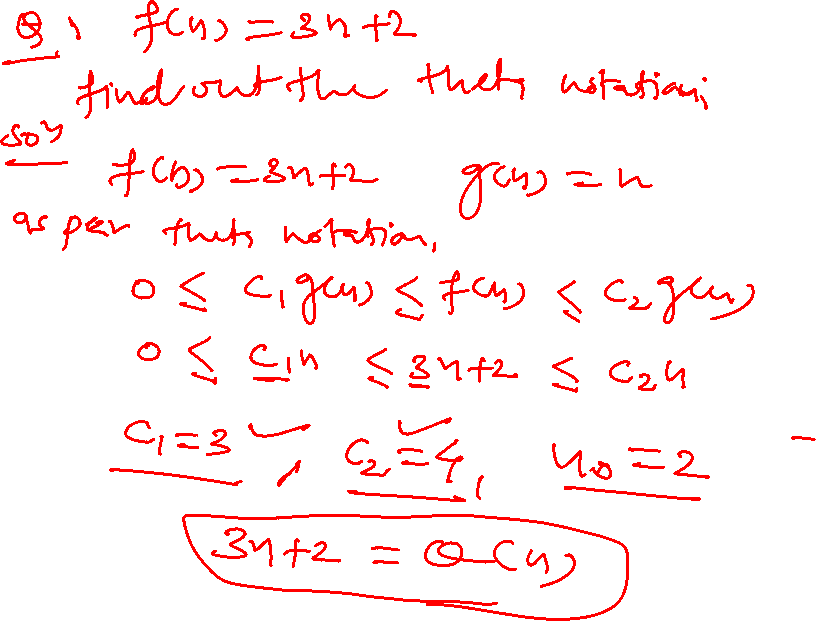 Q, f(n) = 3n+2
find out the theta notation;
sol
f(n) = 3n+2 g(n) = n
as per theta notation,
0 ≤ C₁g(n) ≤ f(n) ≤ C₂g(n)
0 ≤ C₁n ≤ 3n+2 ≤ C₂n
C₁=3 ✓, C₂=4 ✓, n₀=2
3n+2 = Θ(n)